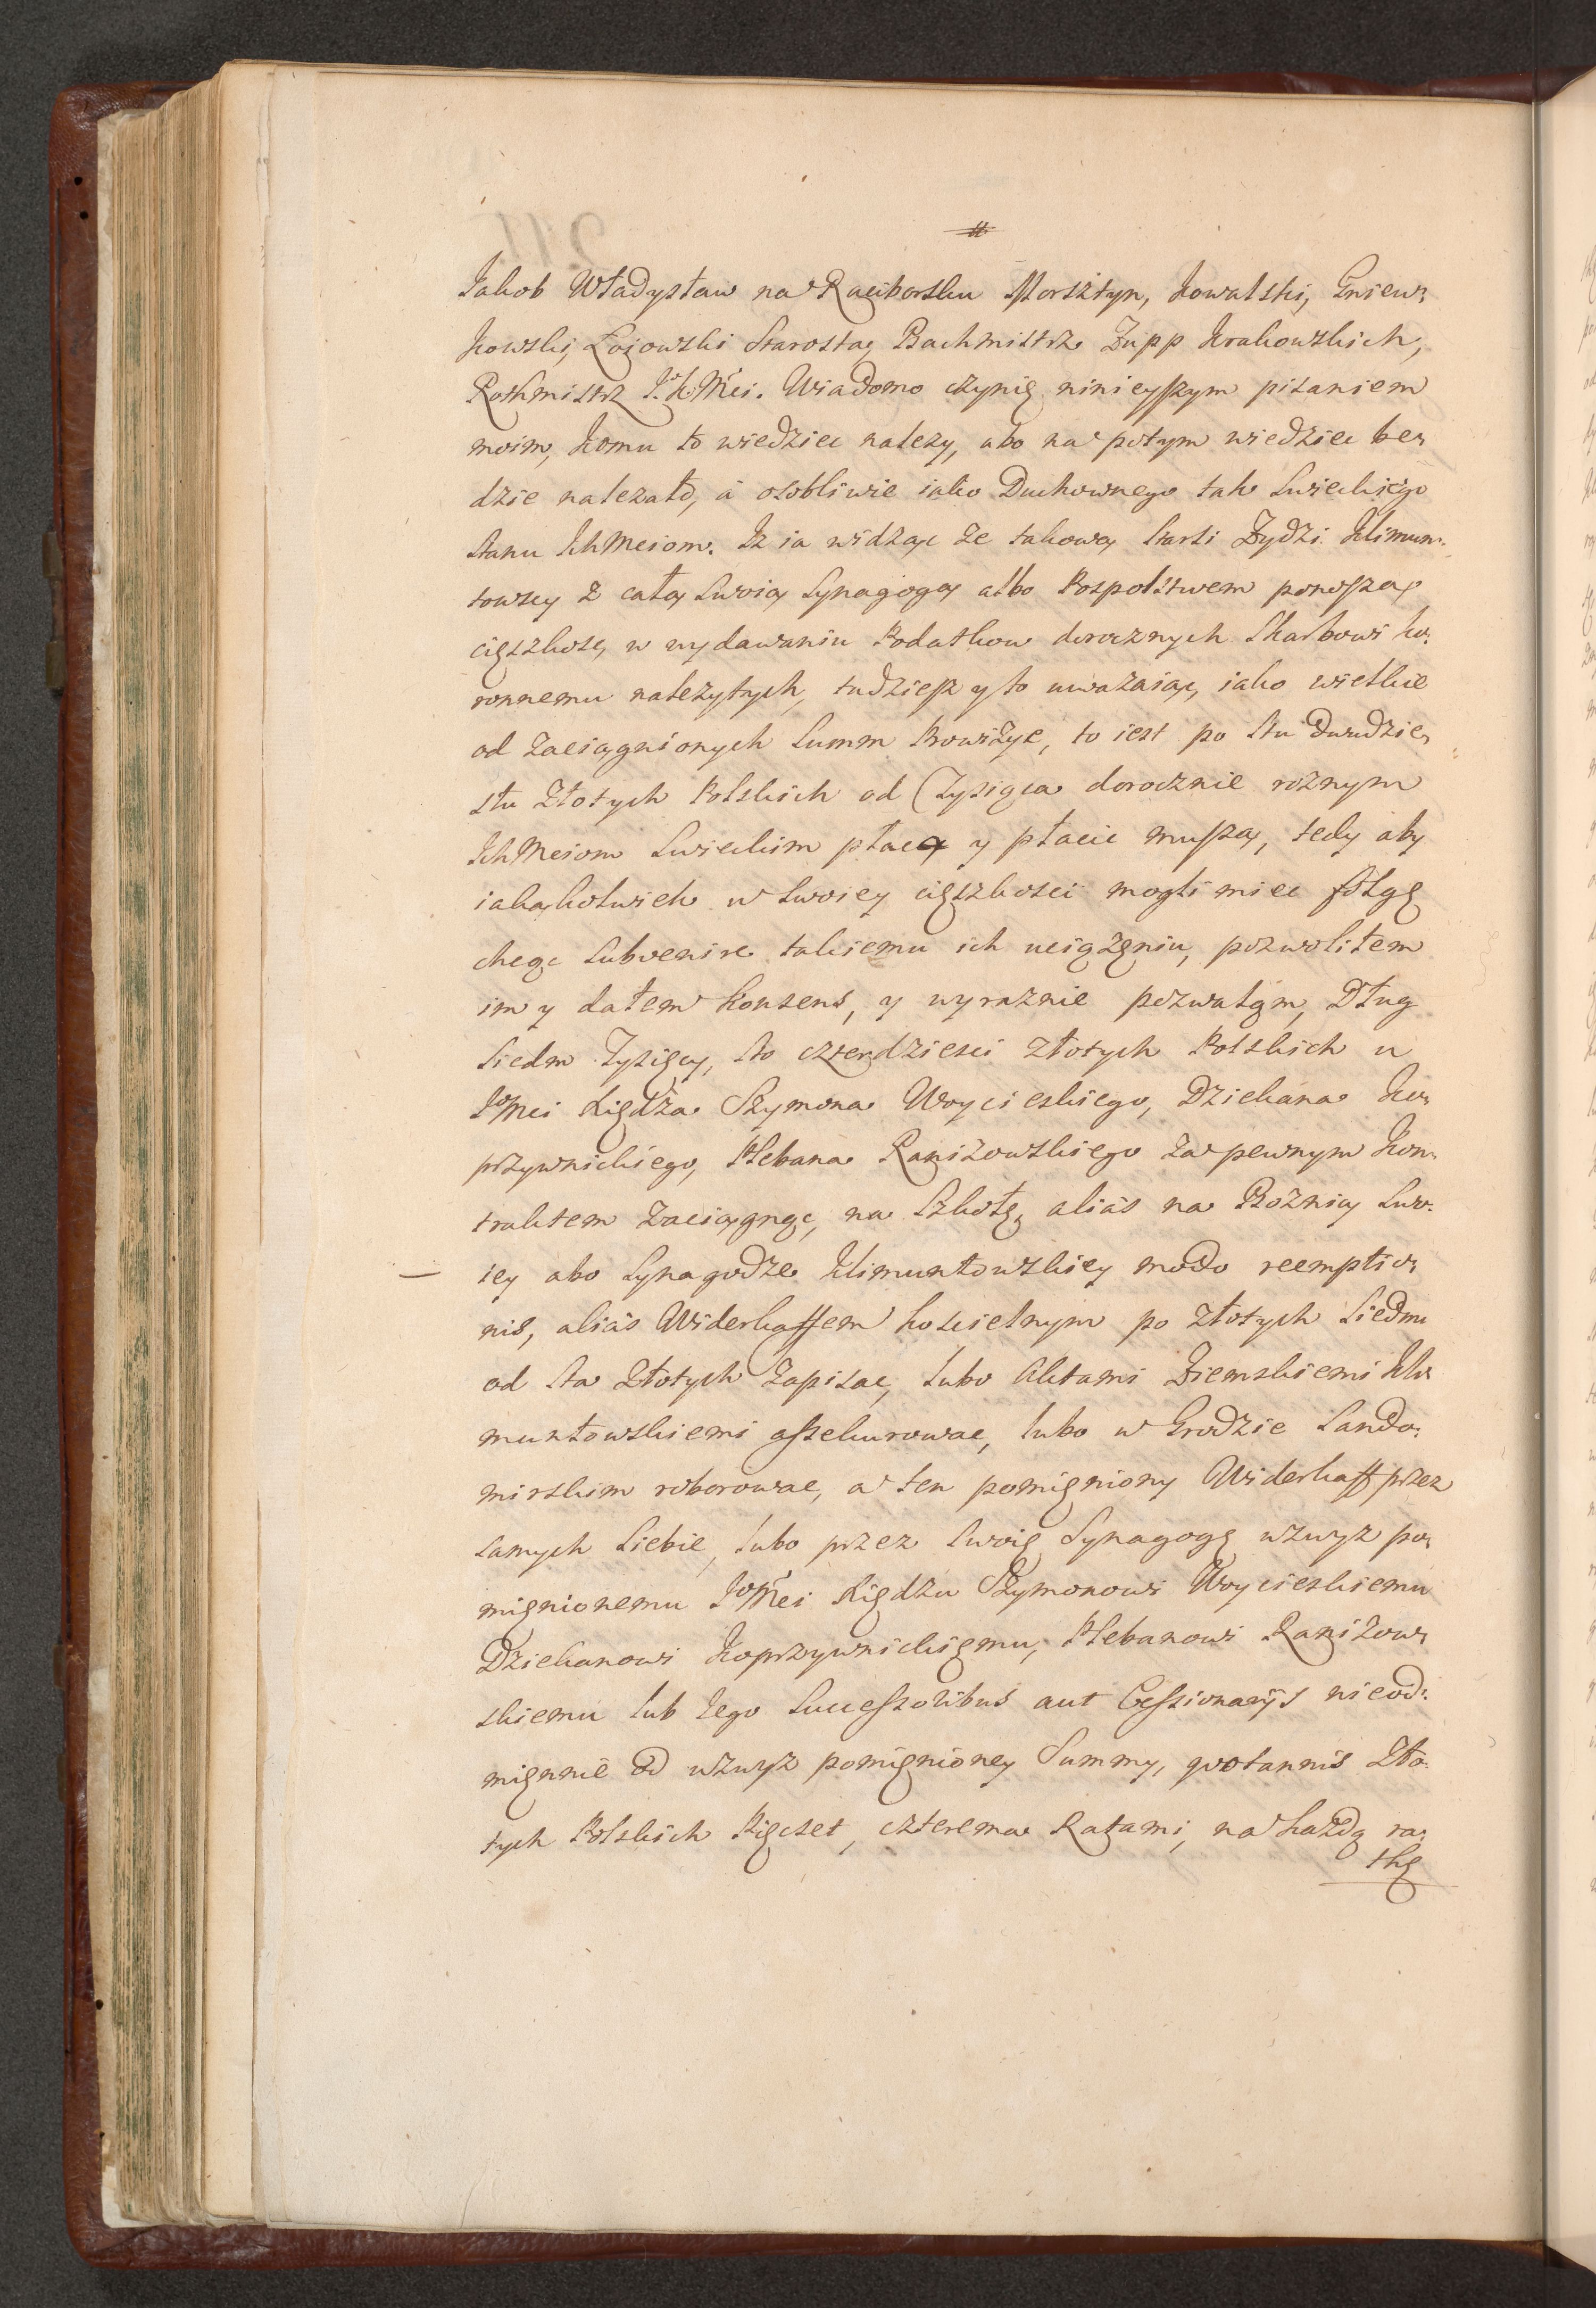 Jakob Władysław na Raciborsku Morsztyn, Kowalski, Gniew„
kowski, Łoiowski Starosta, Bachmistrz Zupp Krakowskich,
Rothmistrz J. K. Mci. Wiadomo czynię ninieyszym pisaniem
moim, komu to wiedziec nalezy, abo na potym wiedziec be„
dzie nalezało, á osobliwie iako Duchownego tak Swieckiego
stanu IchMciom. Iz ia widząc ze takową starsi Zydzi Klimun„
towscy z całą swoią Synagogą albo Pospolstwem ponoszą
cięszkosc, w wydawaniu Podatkow dorocznych Skarbowi Ko„
ronnemu nalezytych, tudziesz y to uwazaiąc, iako wielkie
od zaciągnionych Summ Prowizye, to iest po stu dwudzie„
stu Złotych Polskich od Tysiąca dorocznie roznym
IchMciom Swieckim płacą y płacic muszą, tedy aby
iakąkolwiek w swoiey cięszkosci mogli miec folgę
chcąc subvenire takiemu ich uciązeniu, pozwolilem
im y dałem Konsens, y wyraznie pozwalam, Dług
siedm Tysięcy, sto czterdziesci Złotych Polskich u
JoMci Xiędza Szymona Woycieskiego, Dziekana Ko„
przywnickiego, Plebana Ranizowskiego za pewnym Kon„
traktem zaciągnąc, na Szkołę, aliás na Boznią swo„
iey abo Synagodze Klimuntowskiey modo reemptio„
nis, aliás Widerkaffem koscielnym po złotych siedm
od sta Złotych zapisac, lubo Aktami Ziemskiemi Kli„
muntowskiemi assekurowac, lubo w Grodzie Sando„
mirskim roborowac, a ten pomięniony Widerkaff przez
samych siebie, lubo przez swoię Synagogę wzwyz po„
mięnionemu JoMci Xiędzu Szymonowi Woycieskiemu
Dziekanowi Koprzywnickiemu, Plebanowi Ranizow„
skiemu lub Iego Successoribus aut Cessionarijs nieod„
mięnnie od wzwyz pomięnioney Summy, quotannis Zło„
tych Polskich Pięcset, czterema Ratami, na kazdą ra„
thę